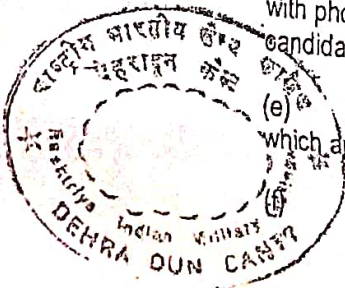 with pho
candida
(e)
which a
(f)
राष्ट्रीय भारतीय सैन्य कालेज
देहरादून कैन्ट
Rashtriya Indian Military
DEHRA DUN CANTT